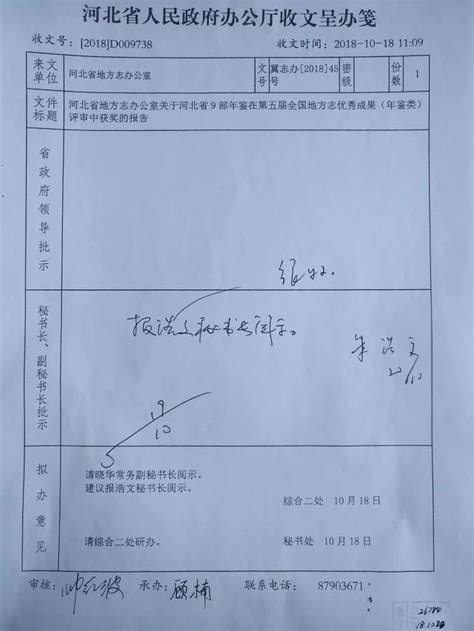 河北省人民政府办公厅收文呈办笺
收文号：[2018]D009738 收文时间：2018-10-18 11:09
来文单位 河北省地方志办公室 文号 冀志办[2018]45 密级 份数 1
文件标题 河北省地方志办公室关于河北省9部年鉴在第五届全国地方志优秀成果（年鉴类）
评审中获奖的报告
省政府领导批示
秘书长、副秘书长批示
报浩文秘书长阅示。
朱浩文
19/10
拟办意见
请晓华常务副秘书长阅示。
建议报浩文秘书长阅示。
综合二处 10月18日
请综合二处研办。 秘书处 10月18日
审核： 承办：顾楠 联系电话： 87903671
26784